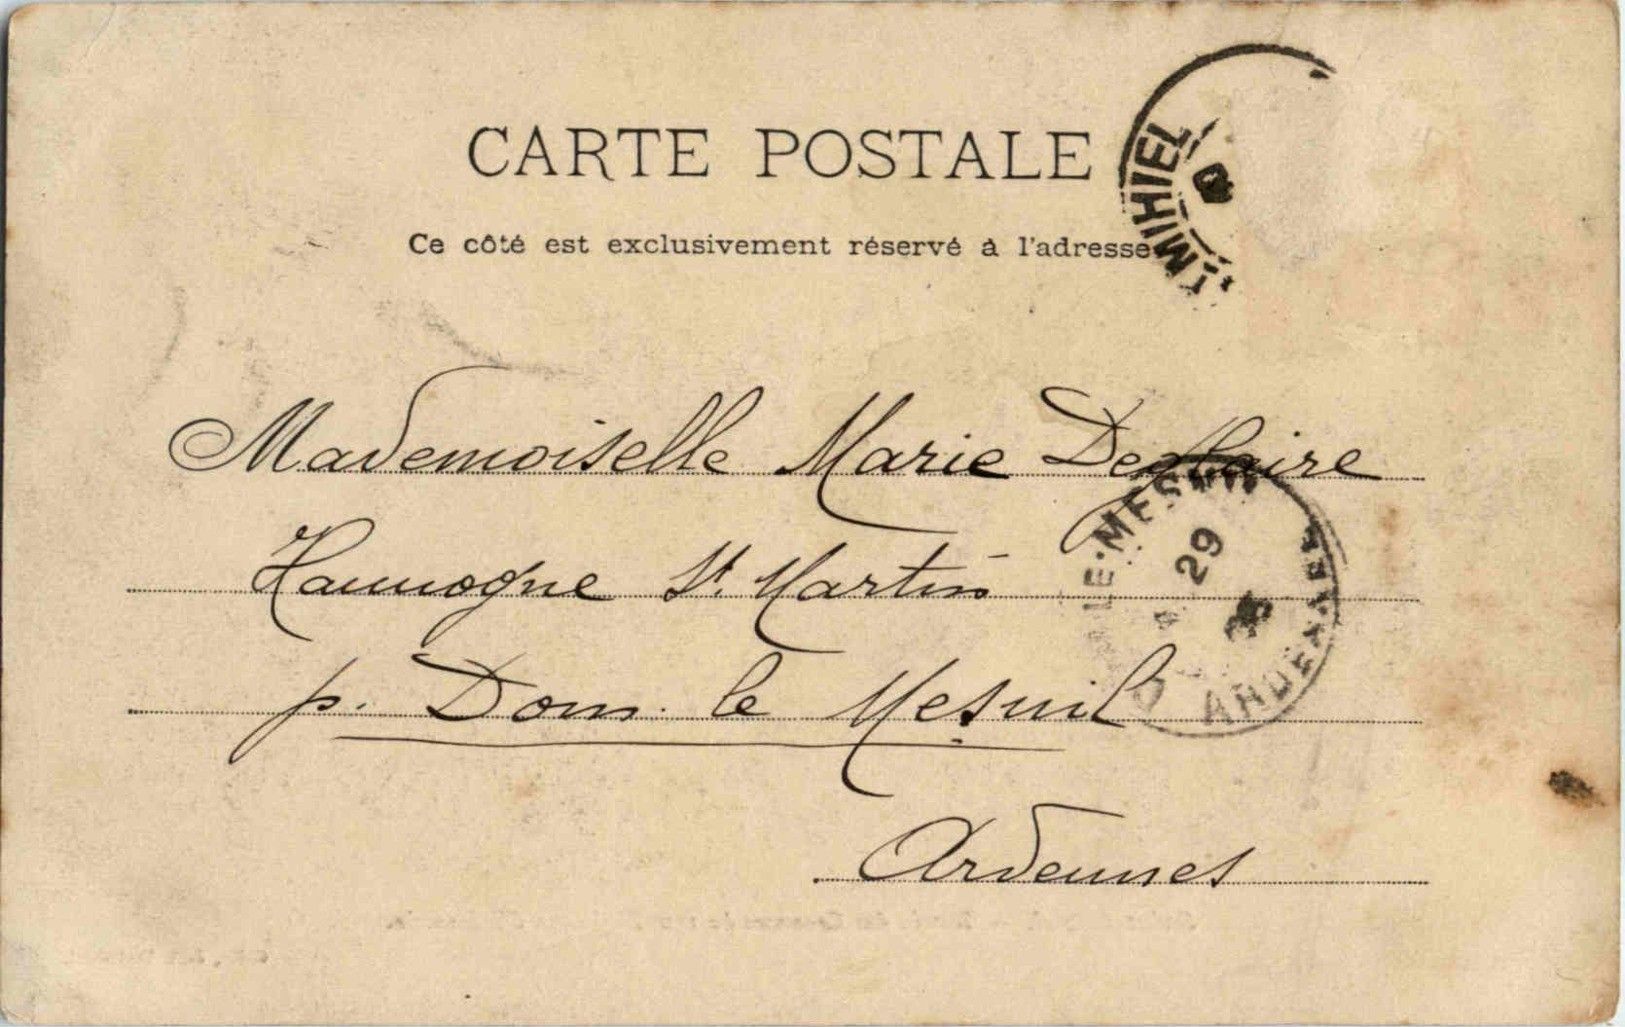 CARTE POSTALE
Ce côté est exclusivement réservé à l'adresse
MIHIEL
Mademoiselle Marie Deglaire
Hannogne St. Martin
p. Dom. le Mesnil
Ardennes
LE-MES
29
ARDENNES